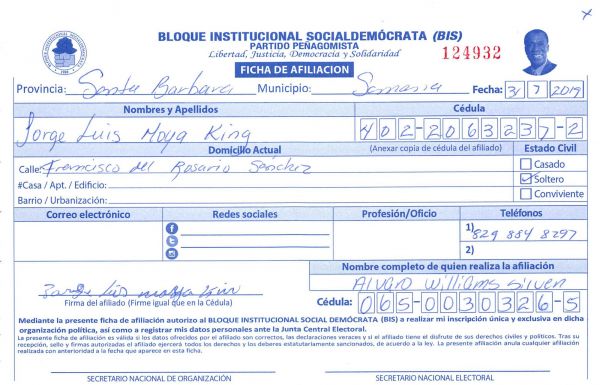 x
BLOQUE INSTITUCIONAL SOCIALDEMÓCRATA (BIS)
PARTIDO PEÑAGOMISTA
Libertad, Justicia, Democracia y Solidaridad
124932
FICHA DE AFILIACION
Provincia: Santa Barbara Municipio: Samana Fecha: 3/7/2019
Nombres y Apellidos Cédula
Jorge Luis Moya King 402-2063237-2
Domicilio Actual (Anexar copia de cédula del afiliado) Estado Civil
Calle: Francisco del Rosario Sánchez Casado
#Casa / Apt. / Edificio: Soltero
Barrio / Urbanización: Conviviente
Correo electrónico Redes sociales Profesión/Oficio Teléfonos
1) 829 884 8297
2)
Nombre completo de quien realiza la afiliación
Alvaro Williams Silven
Firma del afiliado (Firme igual que en la Cédula) Cédula: 065-0030326-5
Mediante la presente ficha de afiliación autorizo al BLOQUE INSTITUCIONAL SOCIAL DEMÓCRATA (BIS) a realizar mi inscripción única y exclusiva en dicha
organización política, así como a registrar mis datos personales ante la Junta Central Electoral.
La presente ficha de afiliación es válida si los datos ofrecidos por el afiliado son correctos, las declaraciones veraces y si el afiliado tiene el disfrute de sus derechos civiles y políticos. Tras su
recepción, sello y firmas autorizadas el afiliado ejercerá todos los derechos y los deberes estatutariamente sancionados, de acuerdo a la ley. La presente afiliación anula cualquier afiliación
realizada con anterioridad a la fecha que aparece en esta ficha.
SECRETARIO NACIONAL DE ORGANIZACIÓN SECRETARIO NACIONAL ELECTORAL